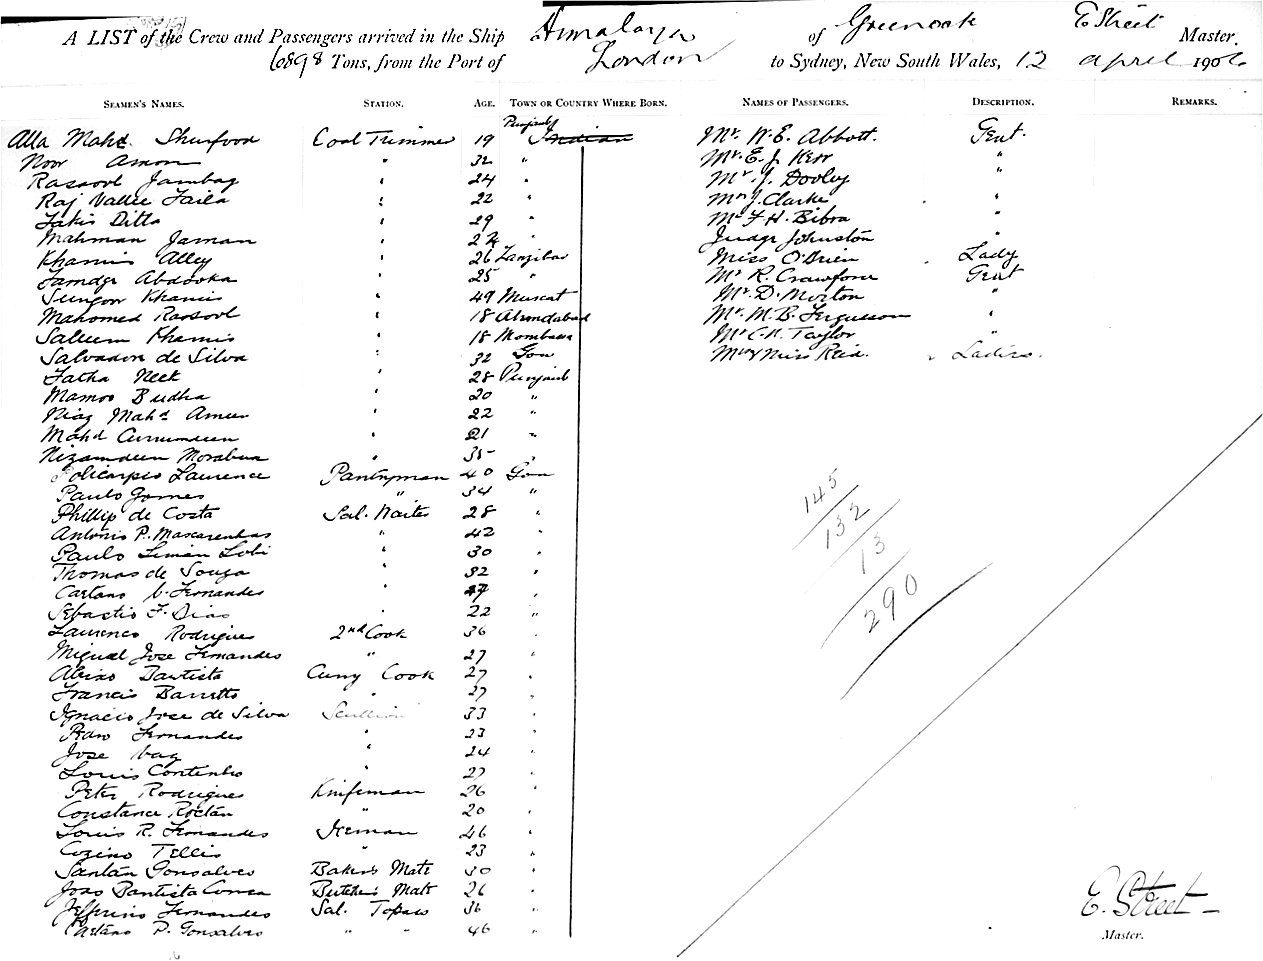 A LIST of the Crew and Passengers arrived in the Ship Himalaya of Greenock E Street Master.
6898 Tons, from the Port of London to Sydney, New South Wales, 12 april 1906
SEAMEN'S NAMES. STATION. AGE. TOWN OR COUNTRY WHERE BORN. NAMES OF PASSENGERS. DESCRIPTION. REMARKS.
Punjaub
Alla Mahd Shurfoon Coal Trimmer 19 Indian Mr. W. E. Abbott. Gent.
Noor Amon " 32 " Mr. E. J. Kerr "
Rassool Jambag " 24 " Mr. J. Dooley "
Raj Vallee Faila " 22 " J. Clarke "
Ditta " 29 " Mr F. H. Bibra "
Mahman Jaman " 24 " Judge Johnston "
Khamis Alley " 26 Zanzibar Miss O'Brien Lady
Abdooka " 25 " Mr R. Crawford Gent
Sungor Khamis " 49 Muscat Mr. D. Morton "
Mahomed Rassool " 18 Ahmdabad Mr. M. B. Fergusson "
Saleem Khamis " 18 Mombassa Mr C. H. Taylor "
Salvador de Silva " 32 Goa Mrs & Miss Reid. Ladies.
Fatha Neek " 28 Punjaub
Mamoo Budha " 20 "
Niaz Mahd Ameer " 22 "
Mahd " 21 "
Nizamdeen Morabux " 35 "
Policarpio Laurence Pantryman 40 Goa
Paulo Gomes " 34 "
Phillip de Costa Sal. Waiter 28 "
Antonio P. Mascarenhas " 42 "
Paulo Lobi " 30 "
Thomas de Souza " 32 "
Caetano C. Fernandes " "
Sebastio F. Dias " 22 "
Laurenco Rodrigues 2nd Cook 36 "
Miguel Jose Fernandes " 27 "
Aleixo Bautista Curry Cook 27 "
Francis Barretto " 27 "
Ignacio Jose de Silva Scullion 33 "
Pedro Fernandes " 23 "
Jose Vaz " 24 "
Louis Contenho " 27 "
Peter Rodrigues Knifeman 26 "
Constance " 20 "
Louis R. Fernandes Iceman 46 "
Cozino Tellis " 23 "
Santan Gonsalves Baker's Mate 30 "
Joao Bautista Correa Butcher's Mate 26 "
Fernandes Sal. Topass 36 "
Caetano P. Gonsalves " " 46 "
145
132
13
290
E. Street
Master.